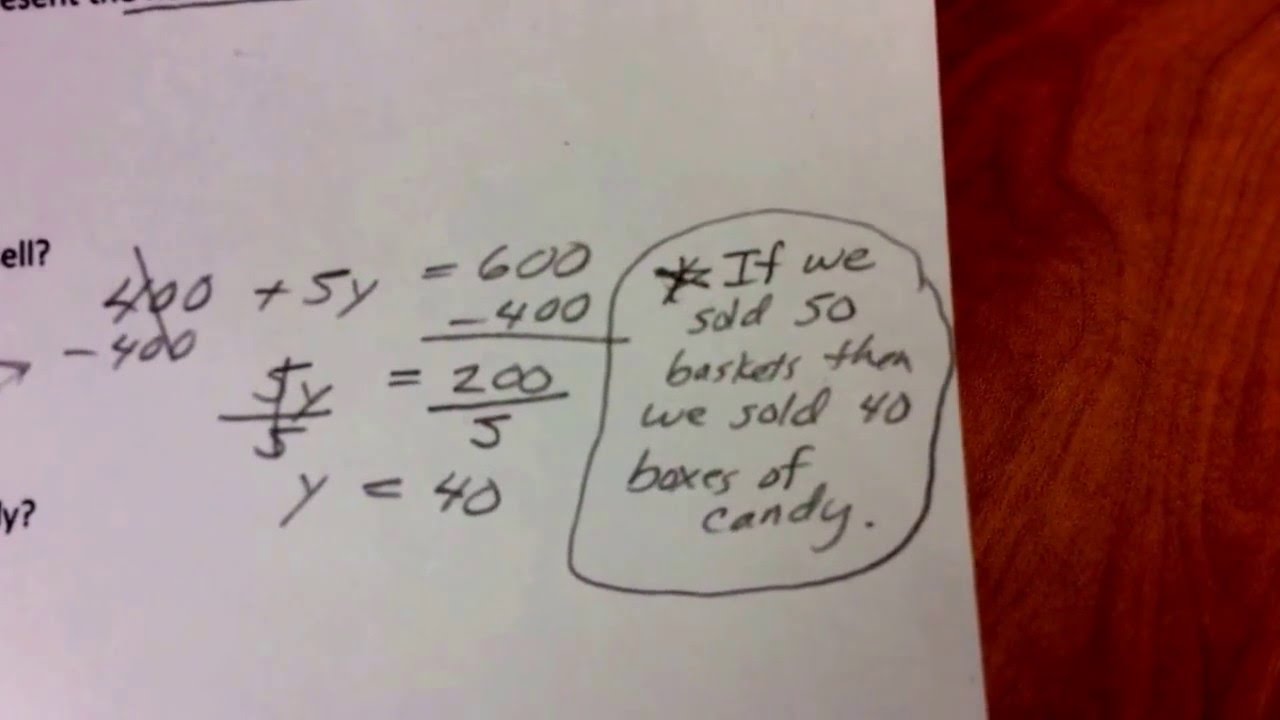 esent the
ell?
400 + 5y = 600
-400 -400
5y = 200
5 5
y = 40
dy?
* If we
sold 50
baskets then
we sold 40
boxes of
candy.